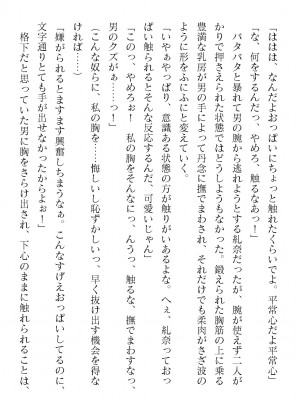 「ははは、なんだよおっぱいにちょっと触れたくらいでよ。平常心だよ平常心」
「な、何をするんだっ、やめろ、触るなあっ！」
バタバタと暴れて男の腕から逃れようとする紘奈だったが、腕が使えず二人が
かりで押さえられた状態ではどうしようもなかった。鍛えられた胸筋の上に乗る
豊満な乳房が男の手によって丹念に撫でまわされ、それだけでも柔肉がさざ波の
ように形をふにふに変えていく。
「いやぁやっぱり、意識ある状態の方が触りがいあるよな。へぇ、紘奈っておっ
ぱい触られるとそんな反応するんだ、可愛いじゃん」
「このっ、やめろぉ！　私の胸をそんなにっ、んうっ、触るな、撫でまわすなっ、
男のクズがぁ……っ！」
（こんな奴らに、私の胸を……悔しいし恥ずかしいっ、早く抜け出す機会を得な
ければ……）
「嫌がられるとますます興奮しちまうなぁ。こんなすげえおっぱいしてるのに、
文字通りとても手が出せなかったからよぉ！」
格下だと思っていた男に胸をさらけ出され、下心のままに触れられることは、